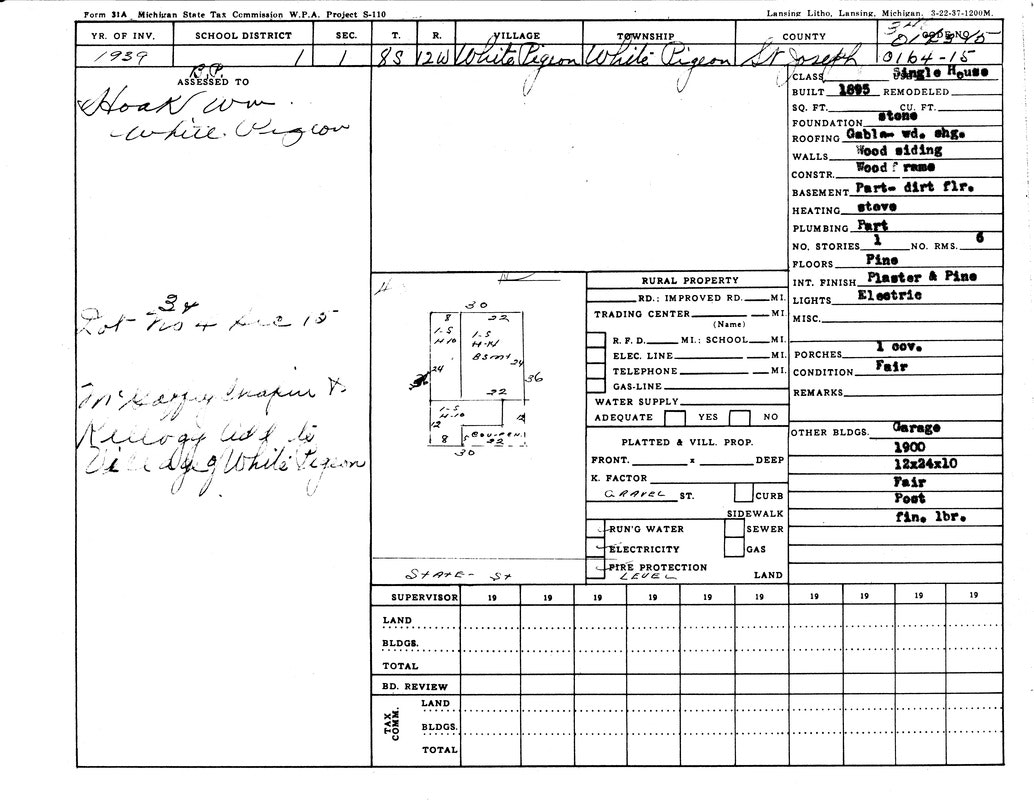 Form 31A Michigan State Tax Commission W.P.A. Project S-110
Lansing Litho, Lansing, Michigan. 3-22-37-1200M.
YR. OF INV. SCHOOL DISTRICT SEC. T. R. VILLAGE TOWNSHIP COUNTY CODE NO.
1939 1 1 8S 12W White Pigeon White Pigeon St Joseph 0164-15
R.P.
ASSESSED TO
Hoak Wm.
White Pigeon
34
Lot No 4 Sec 15
Kellogg Add to
Village of White Pigeon
CLASS Single House
BUILT 1895 REMODELED
SQ. FT. CU. FT.
FOUNDATION stone
ROOFING Gable- wd. shg.
WALLS Wood siding
CONSTR. Wood frame
BASEMENT Part- dirt flr.
HEATING stove
PLUMBING Part
NO. STORIES 1 NO. RMS. 6
FLOORS Pine
INT. FINISH Plaster & Pine
LIGHTS Electric
MISC.
PORCHES 1 cov.
CONDITION Fair
REMARKS
OTHER BLDGS. Garage
1900
12x24x10
Fair
Post
fin. lbr.
N
30
8 22
1-S 1-S
H-10 H-14
Bsmt
24 24
36
22
1-S
H-10
12 12
8 5 22
30
STATE- St
RURAL PROPERTY
RD.; IMPROVED RD. MI.
TRADING CENTER MI.
(Name)
R. F. D. MI.; SCHOOL MI.
ELEC. LINE MI.
TELEPHONE MI.
GAS-LINE
WATER SUPPLY
ADEQUATE YES NO
PLATTED & VILL. PROP.
FRONT. x DEEP
K. FACTOR
GRAVEL ST. CURB
SIDEWALK
RUN'G WATER SEWER
ELECTRICITY GAS
FIRE PROTECTION
LEVEL LAND
SUPERVISOR 19 19 19 19 19 19 19 19 19 19
LAND
BLDGS.
TOTAL
BD. REVIEW
TAX COMM.
LAND
BLDGS.
TOTAL